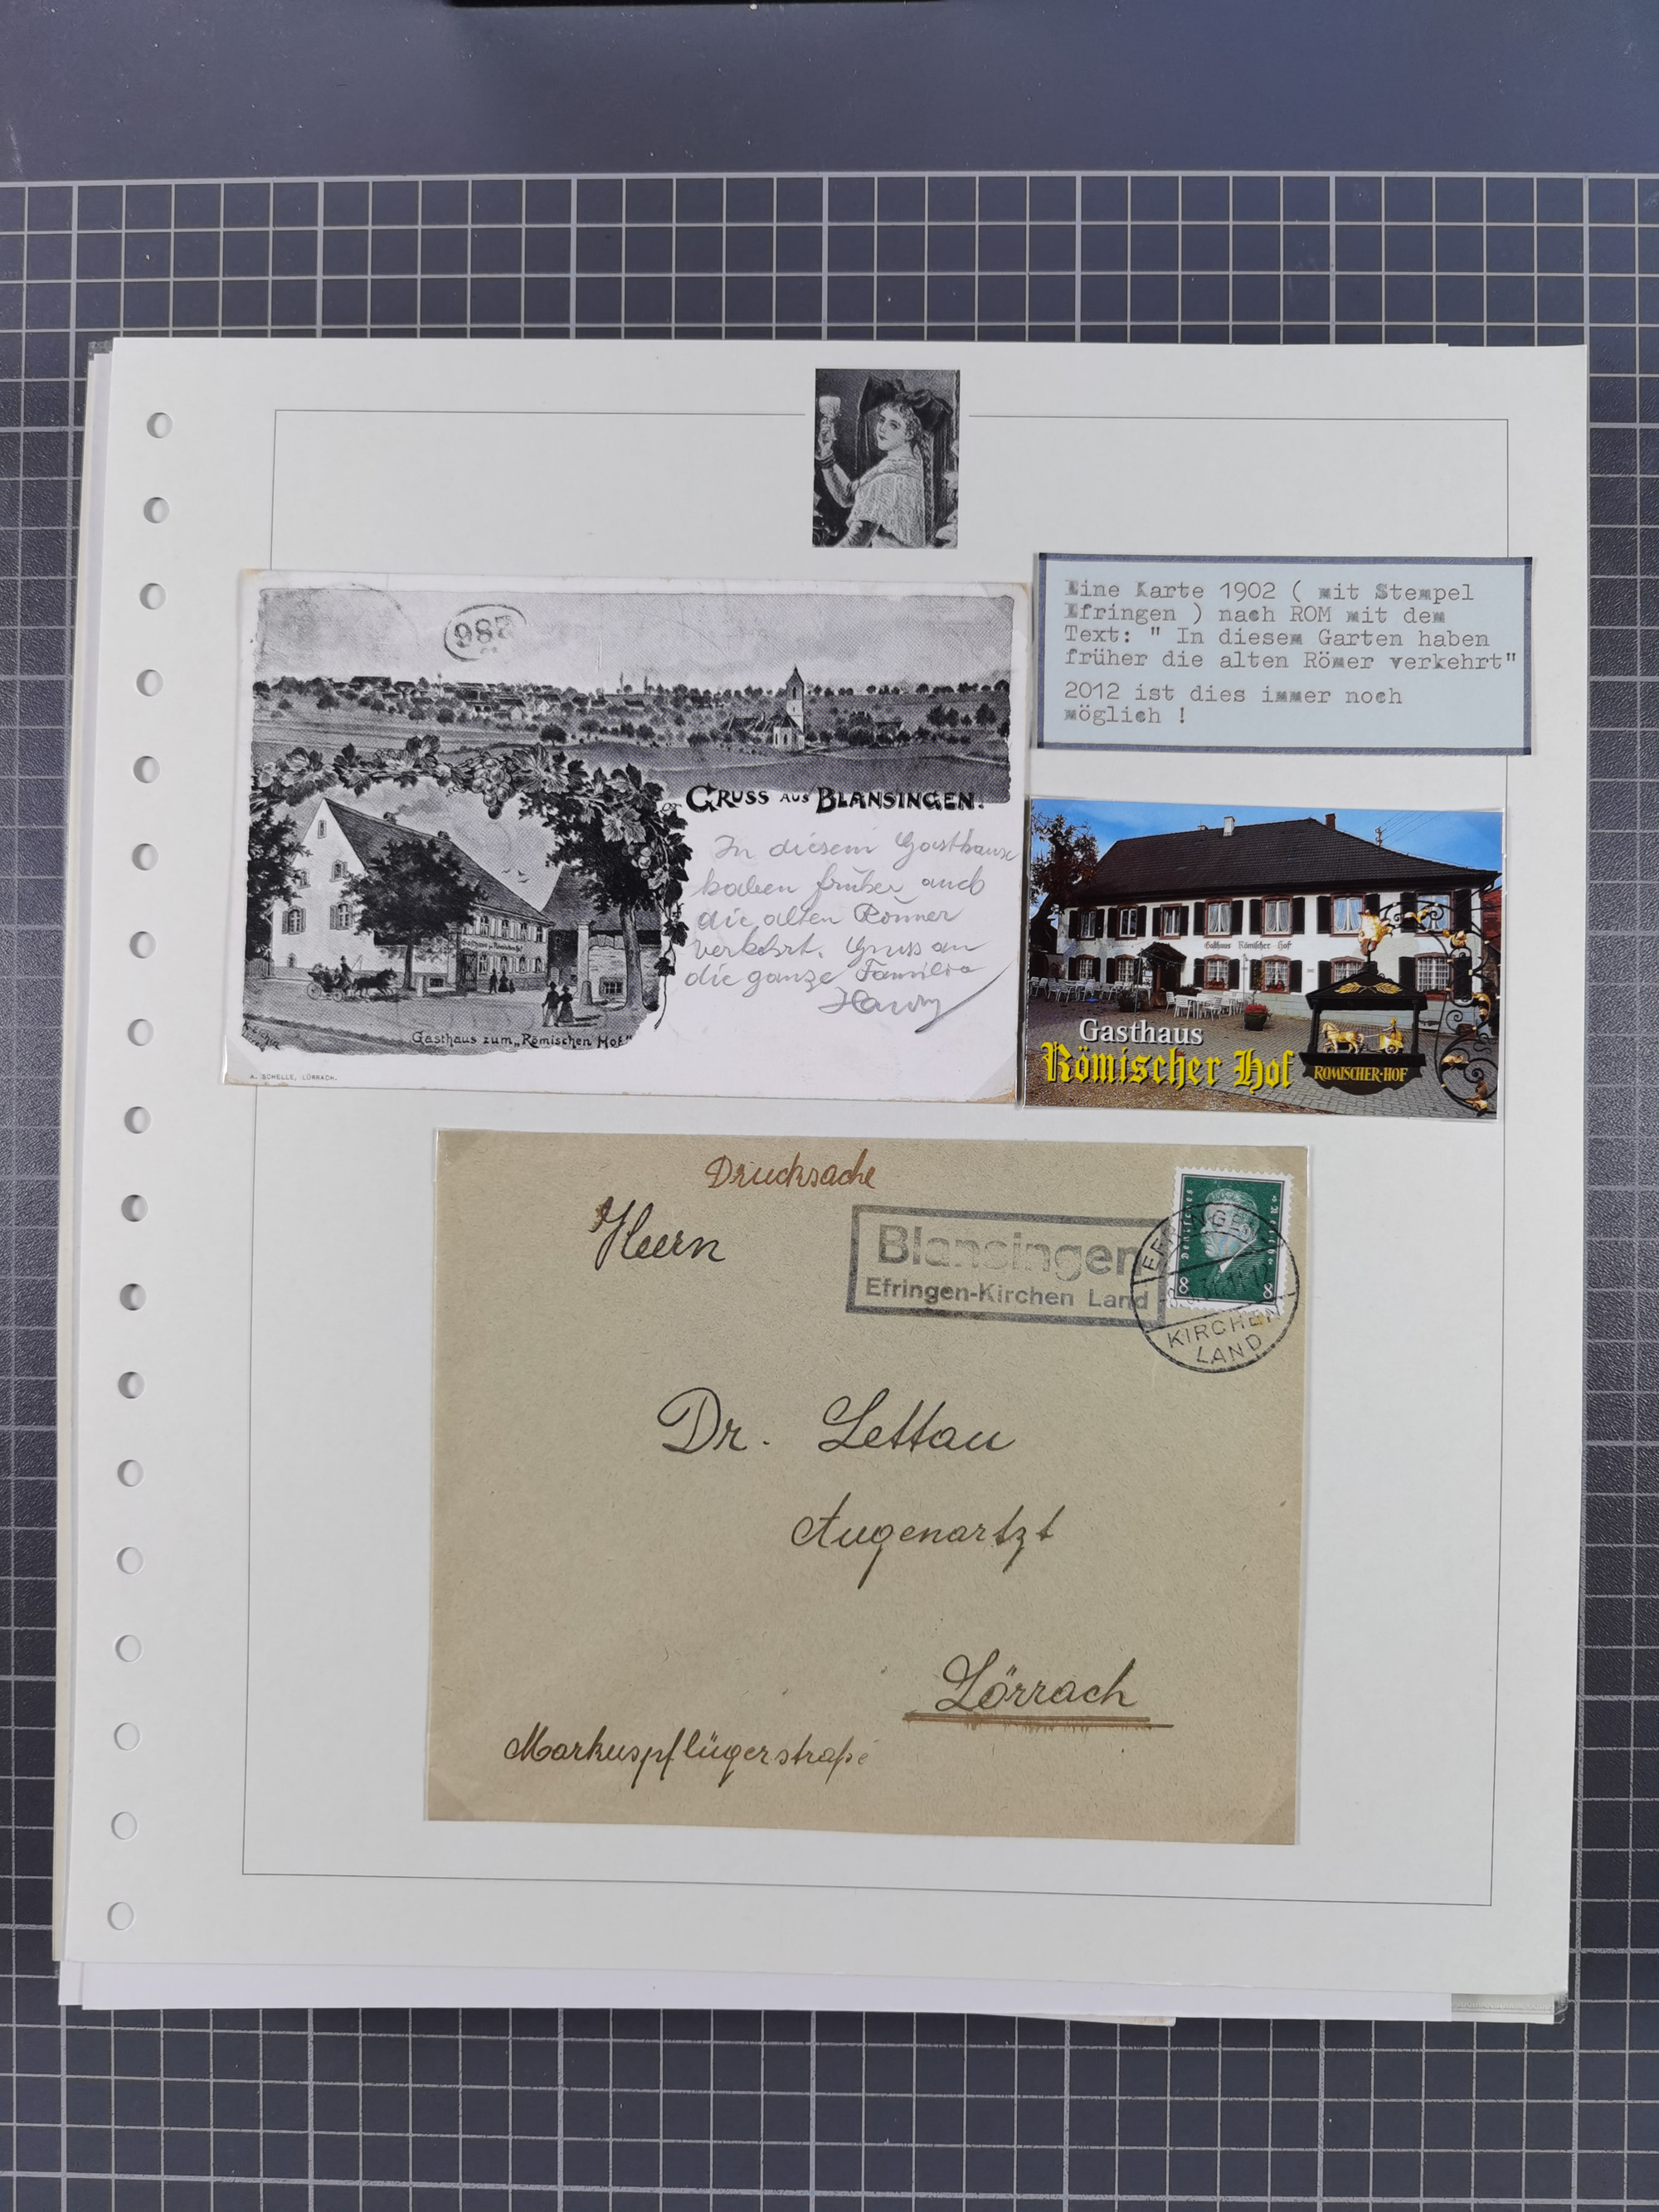 982
GRUSS AUS BLANSINGEN.
In diesem Gasthause
haben früher auch
die alten Römer
verkehrt. Gruss an
die ganze Familie
Gasthaus zum „Römischen Hof"
A. SCHELLE, LÖRRACH.
Eine Karte 1902 ( mit Stempel
Efringen ) nach ROM mit dem
Text: " In diesem Garten haben
früher die alten Römer verkehrt"
2012 ist dies immer noch
möglich !
Gasthaus Römischer Hof
Gasthaus
Römischer Hof
RÖMISCHER-HOF
Drucksache
Herrn
Blansingen
Efringen-Kirchen Land
Deutsches Reich
8 8
EFRINGEN
KIRCHEN
LAND
Dr. Lettau
Augenartzt
Lörrach
Markuspflügerstraße